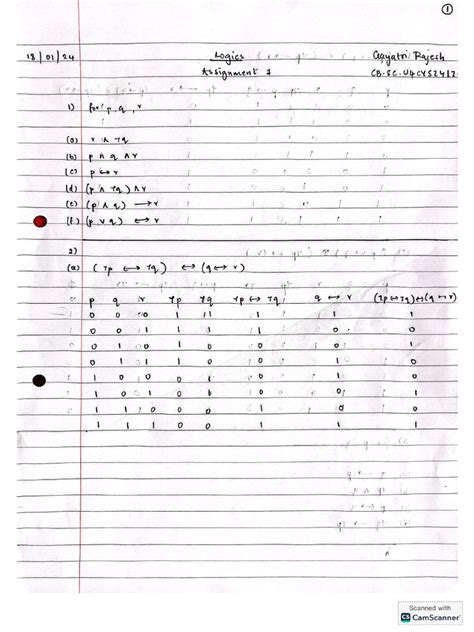 ①
18/01/24 Logics Gayatri Rajesh
Assignment 1
1) for p, q, r
(a) r ∧ ¬q
(b) p ∧ q ∧ r
(c) p ↔ r
(d) (p ∧ ¬q) ∧ r
(e) (p ∧ q) → r
(f) (p ∨ q) ↔ r
2)
(a) (¬p ↔ ¬q) ↔ (q ↔ r)
p q r ¬p ¬q ¬p ↔ ¬q q ↔ r (¬p↔¬q)↔(q↔r)
0 0 0 1 1 1 1 1
0 0 1 1 1 1 0 0
0 1 0 1 0 0 0 1
0 1 1 1 0 0 1 0
1 0 0 0 1 0
1 0 1 0 1 0 0 1
1 1 0 0 0 1 0 0
1 1 1 0 0 1 1 1
Scanned with
CS CamScanner